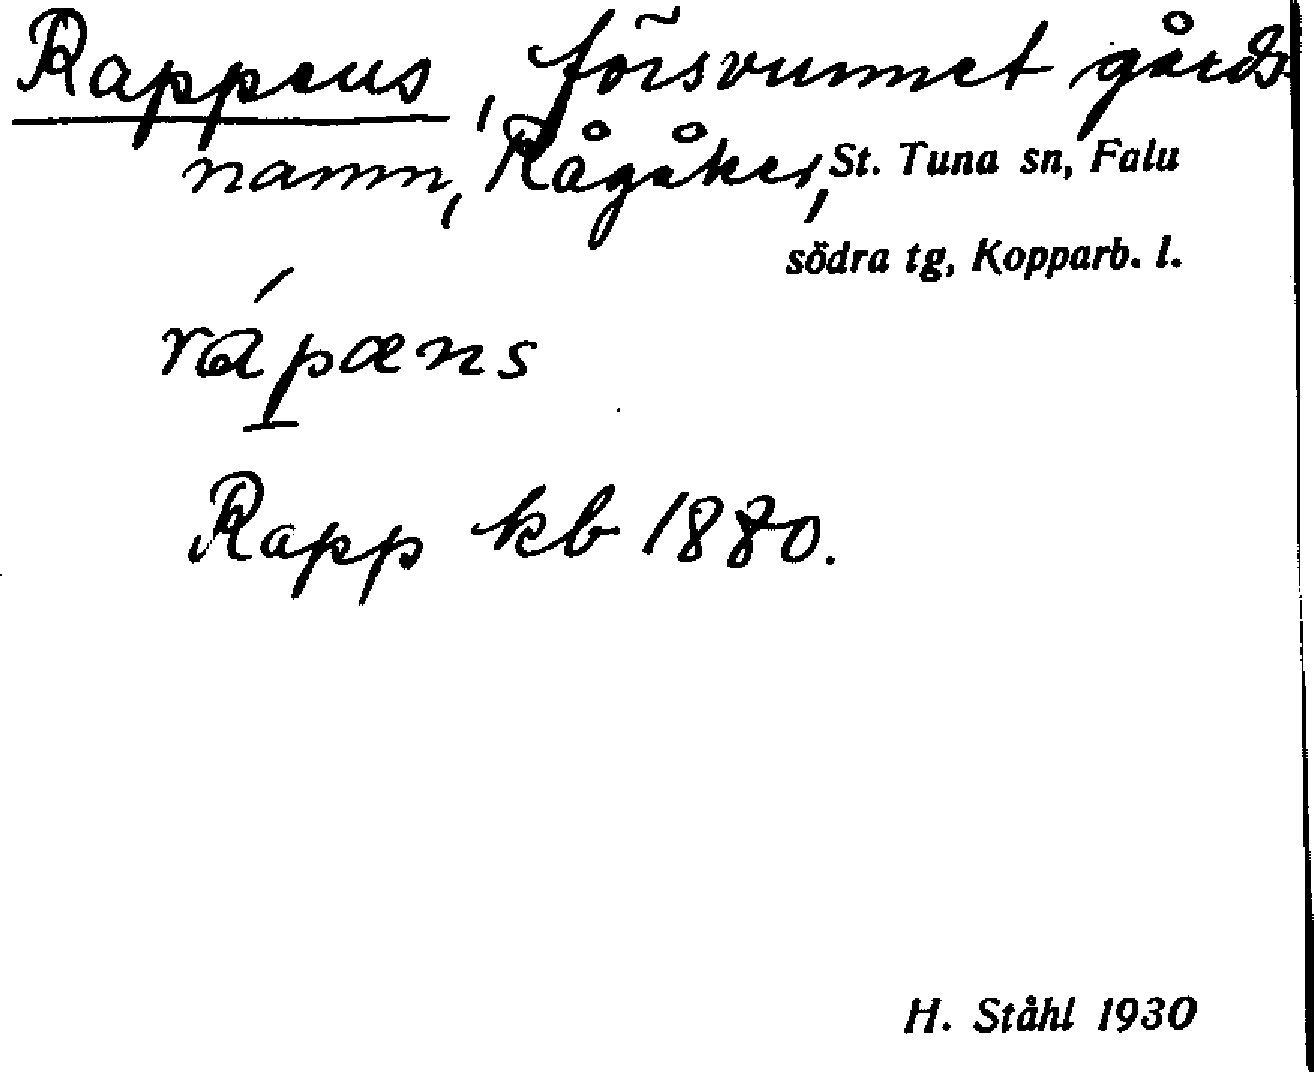 Rappens, försvunnet gårds-
namn, Rågåker, St. Tuna sn, Falu
södra tg, Kopparb. l.
rápæns
Rapp kb 1880.
H. Ståhl 1930